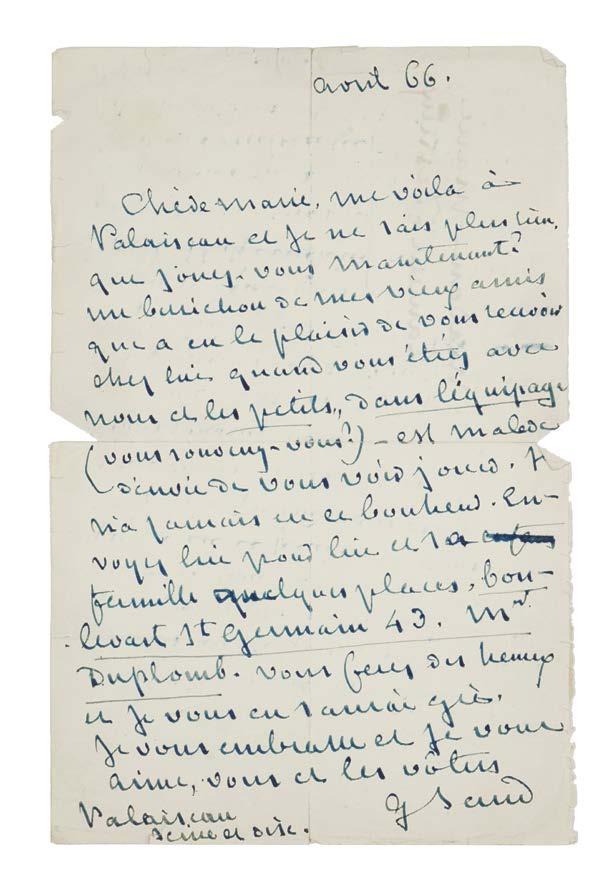 avril 66.
Chère Marie, me voilà à
Palaiseau et je ne sais plus rien.
que jouez-vous maintenant?
un berrichon de mes vieux amis
qui a eu le plaisir de vous recevoir
chez lui quand vous étiez avec
nous et les petits, dans l'équipage
(vous souvenez-vous?) – est malade
d'envie de vous voir jouer. Il
n'a jamais eu ce bonheur. En-
voyez lui pour lui et sa enfans
famille quelques places, bou-
levart St Germain 43. Mr
Duplomb. vous ferez des heureux
et je vous en saurai gré.
Je vous embrasse et je vous
aime, vous et les vôtres
G Sand
Palaiseau
Seine et Oise.